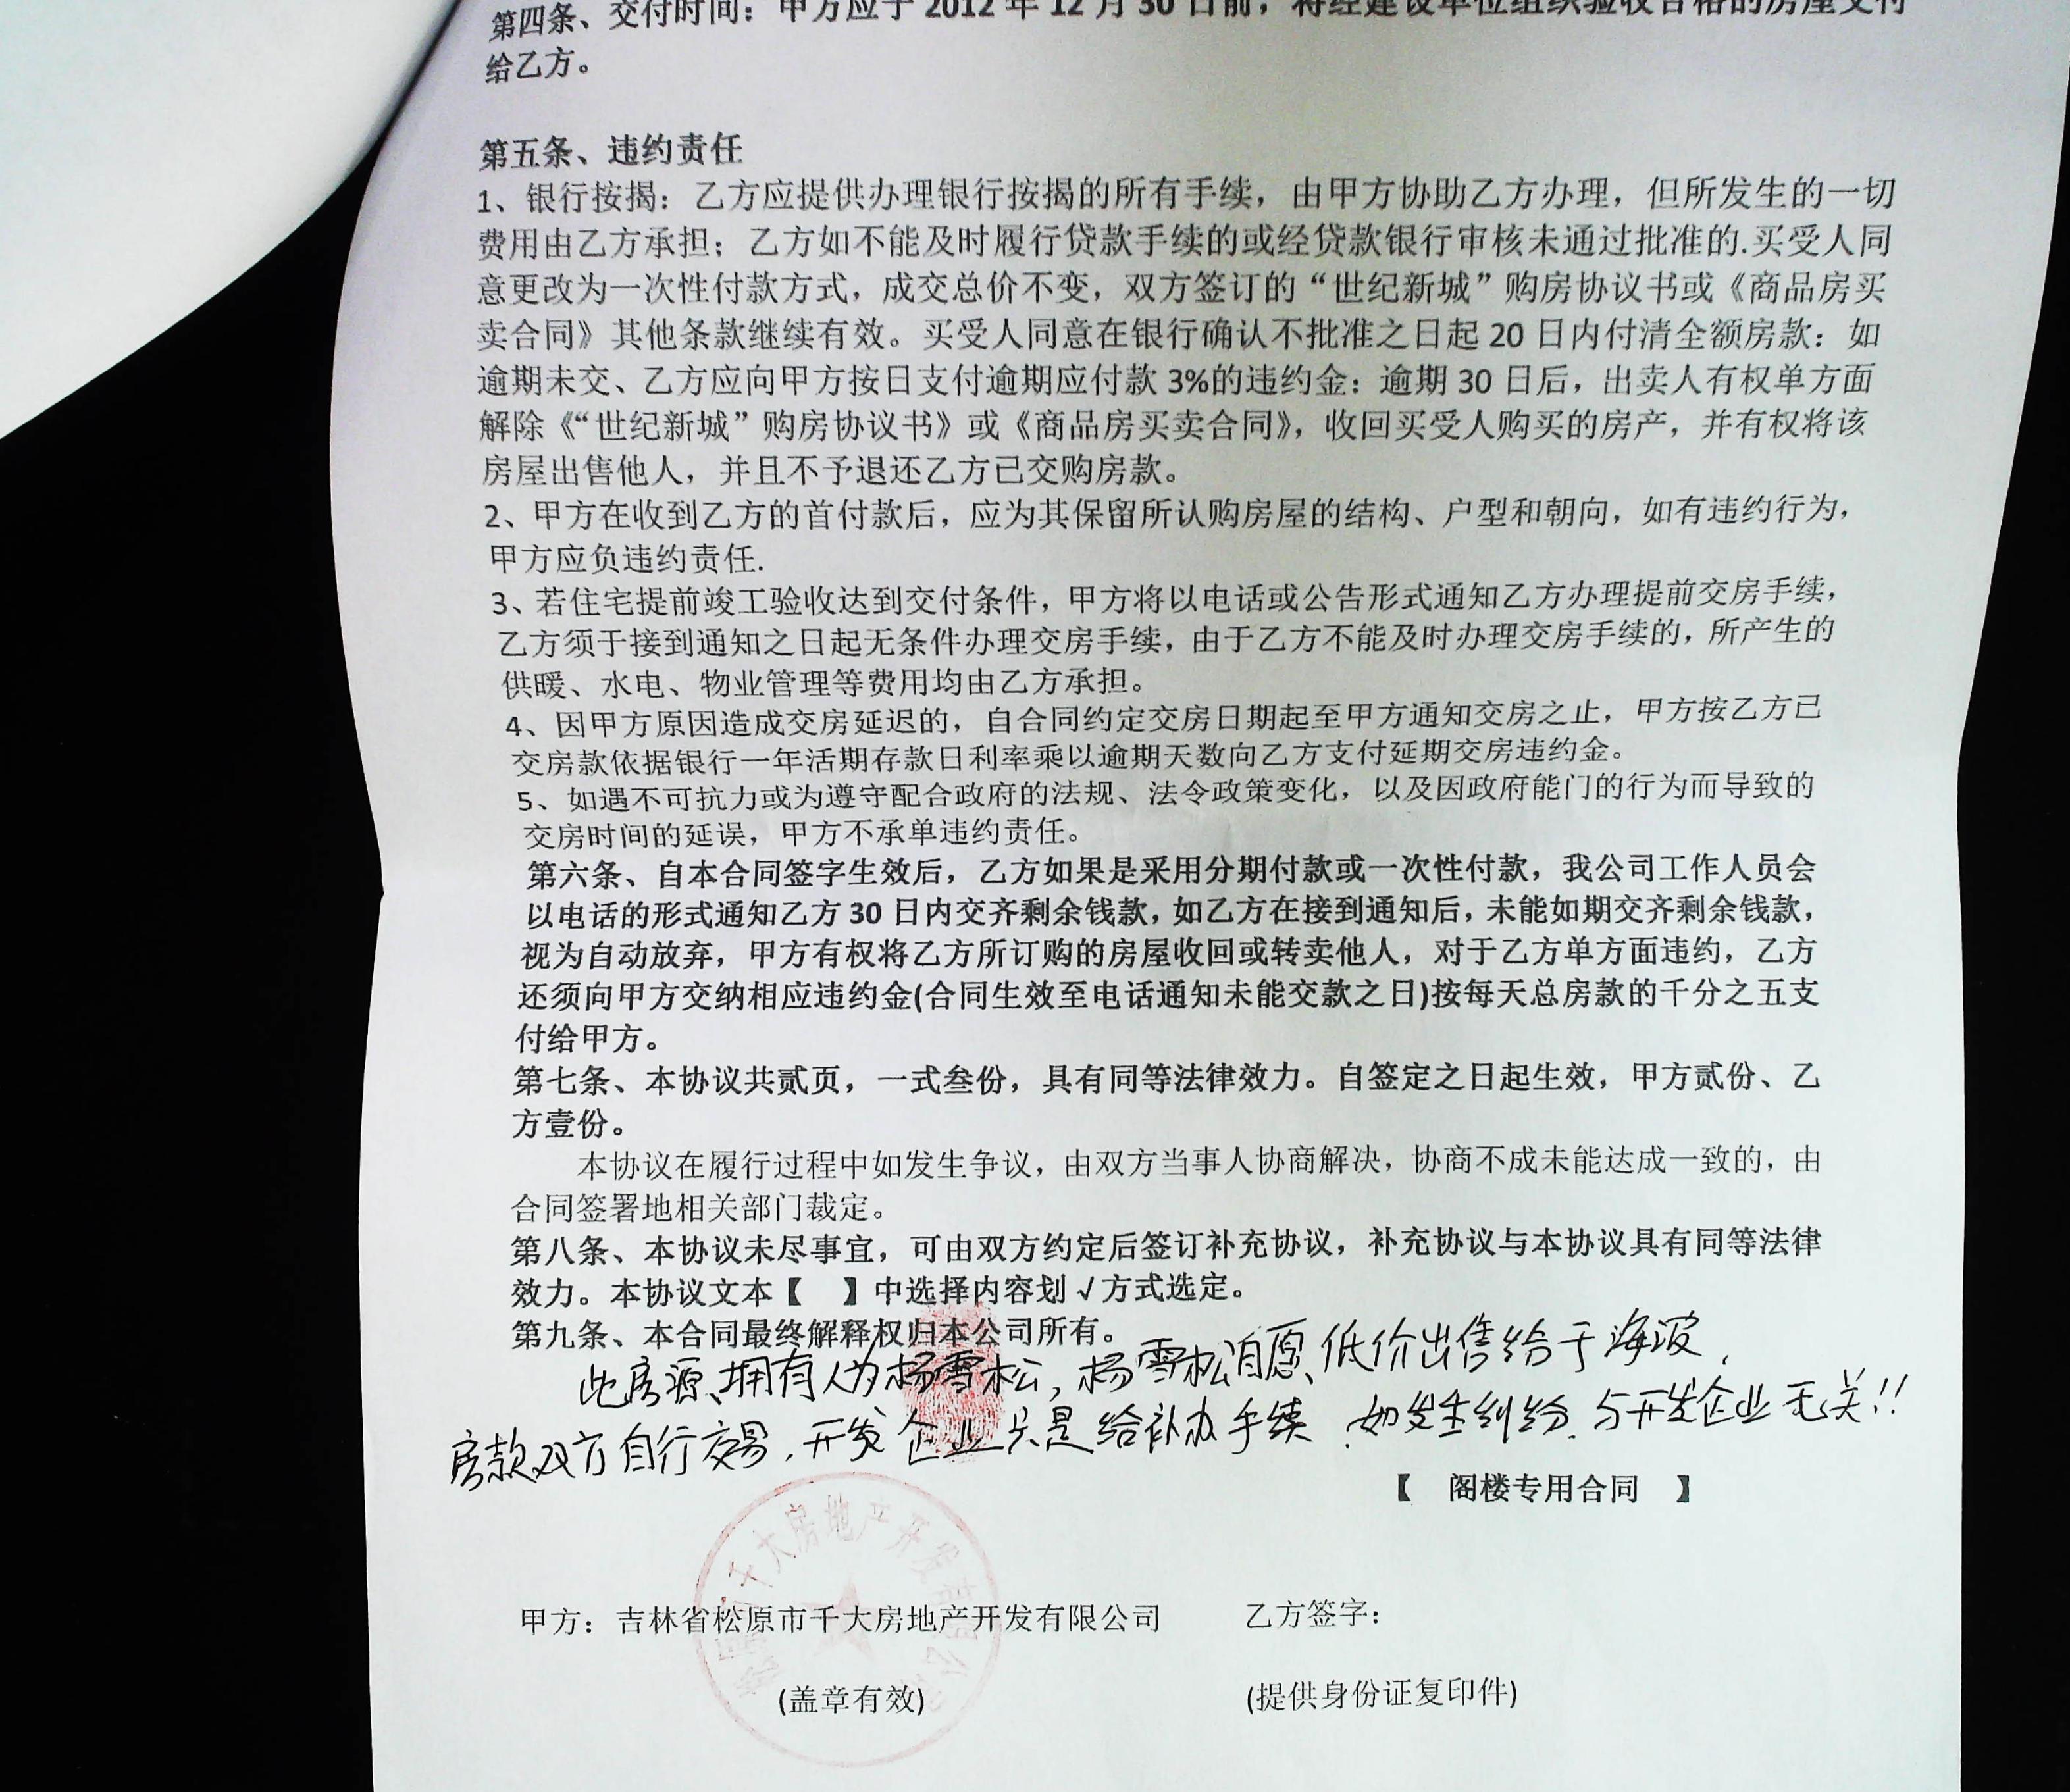 第四条、交付时间：甲方应于 2012 年 12 月 30 日前，将经建设单位组织验收合格的房屋交付
给乙方。
第五条、违约责任
1、银行按揭：乙方应提供办理银行按揭的所有手续，由甲方协助乙方办理，但所发生的一切
费用由乙方承担；乙方如不能及时履行贷款手续的或经贷款银行审核未通过批准的.买受人同
意更改为一次性付款方式，成交总价不变，双方签订的“世纪新城”购房协议书或《商品房买
卖合同》其他条款继续有效。买受人同意在银行确认不批准之日起 20 日内付清全额房款：如
逾期未交、乙方应向甲方按日支付逾期应付款 3%的违约金：逾期 30 日后，出卖人有权单方面
解除《“世纪新城”购房协议书》或《商品房买卖合同》，收回买受人购买的房产，并有权将该
房屋出售他人，并且不予退还乙方已交购房款。
2、甲方在收到乙方的首付款后，应为其保留所认购房屋的结构、户型和朝向，如有违约行为，
甲方应负违约责任.
3、若住宅提前竣工验收达到交付条件，甲方将以电话或公告形式通知乙方办理提前交房手续，
乙方须于接到通知之日起无条件办理交房手续，由于乙方不能及时办理交房手续的，所产生的
供暖、水电、物业管理等费用均由乙方承担。
4、因甲方原因造成交房延迟的，自合同约定交房日期起至甲方通知交房之止，甲方按乙方已
交房款依据银行一年活期存款日利率乘以逾期天数向乙方支付延期交房违约金。
5、如遇不可抗力或为遵守配合政府的法规、法令政策变化，以及因政府能门的行为而导致的
交房时间的延误，甲方不承单违约责任。
第六条、自本合同签字生效后，乙方如果是采用分期付款或一次性付款，我公司工作人员会
以电话的形式通知乙方 30 日内交齐剩余钱款，如乙方在接到通知后，未能如期交齐剩余钱款，
视为自动放弃，甲方有权将乙方所订购的房屋收回或转卖他人，对于乙方单方面违约，乙方
还须向甲方交纳相应违约金(合同生效至电话通知未能交款之日)按每天总房款的千分之五支
付给甲方。
第七条、本协议共贰页，一式叁份，具有同等法律效力。自签定之日起生效，甲方贰份、乙
方壹份。
本协议在履行过程中如发生争议，由双方当事人协商解决，协商不成未能达成一致的，由
合同签署地相关部门裁定。
第八条、本协议未尽事宜，可由双方约定后签订补充协议，补充协议与本协议具有同等法律
效力。本协议文本【 】中选择内容划√方式选定。
第九条、本合同最终解释权归本公司所有。
此房源、拥有人为杨雪松，杨雪松自愿、低价出售给于海波，
房款双方自行交易，开发企业只是给补办手续，如发生纠纷，与开发企业无关!!
【 阁楼专用合同 】
千大房地产开发有限公司
甲方：吉林省松原市千大房地产开发有限公司 乙方签字：
(盖章有效) (提供身份证复印件)